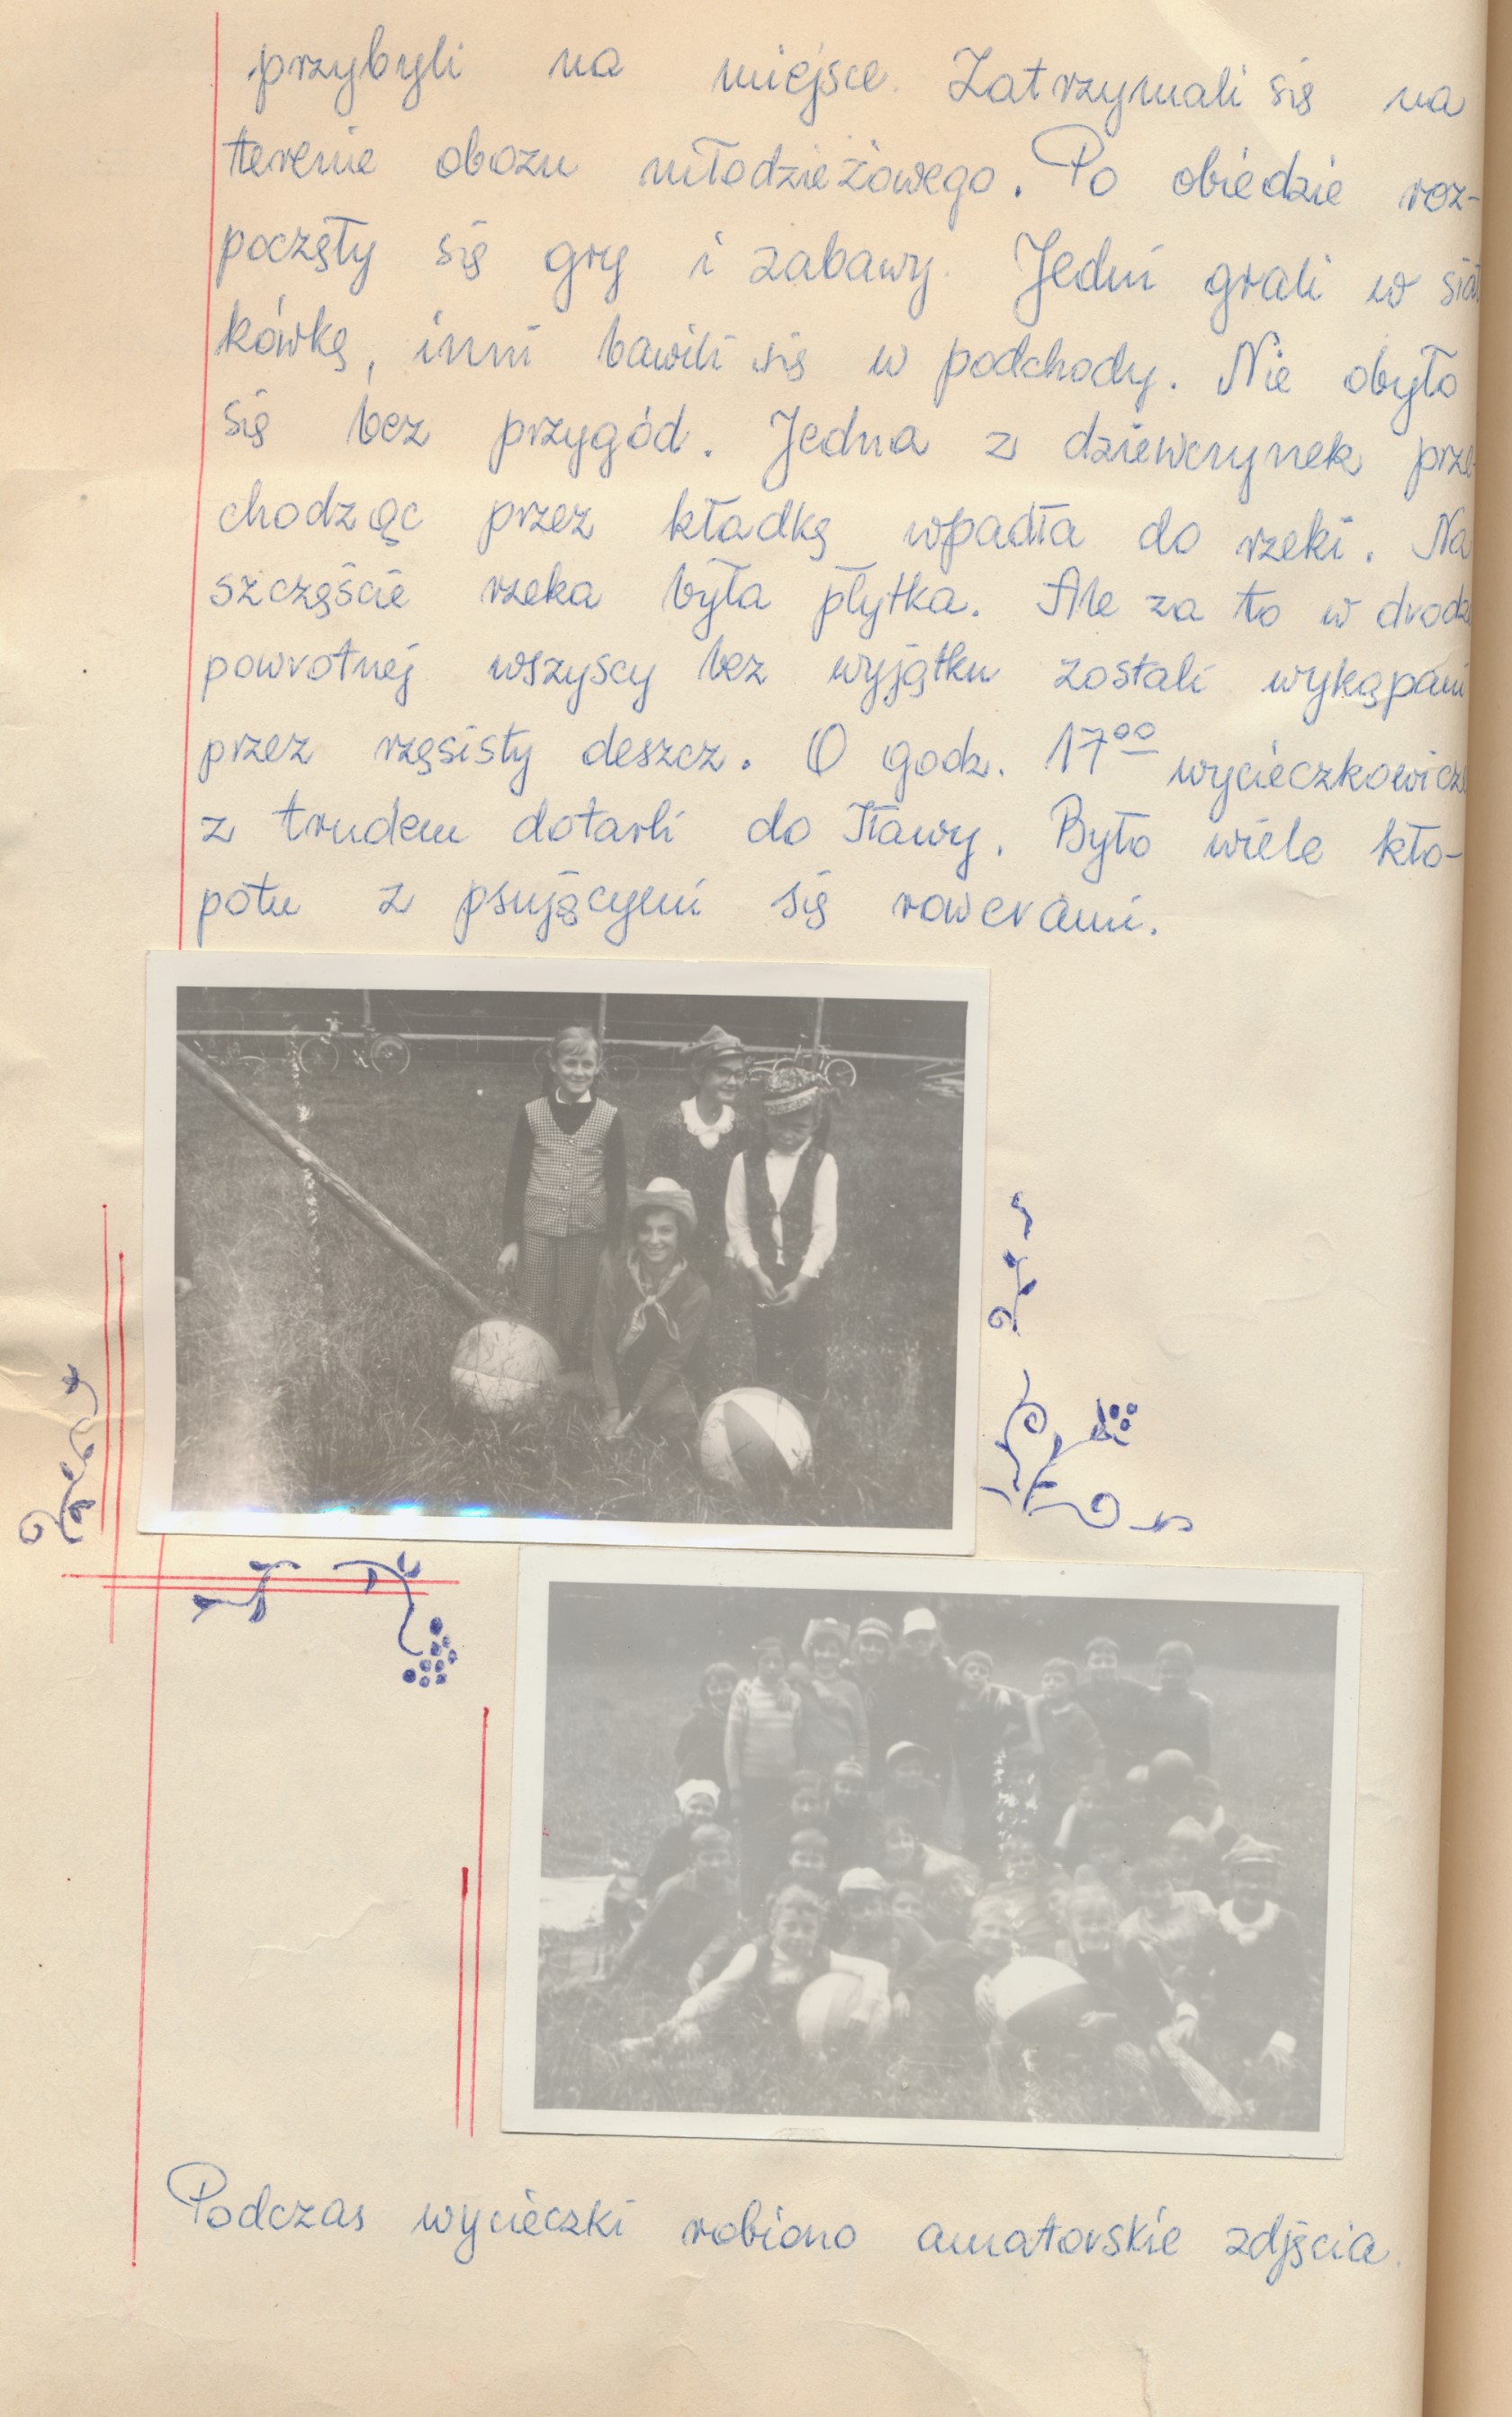 przybyli na miejsce. Zatrzymali się na
terenie obozu młodzieżowego. Po obiedzie roz-
poczęły się gry i zabawy. Jedni grali w siat
kówkę, inni bawili się w podchody. Nie obyło
się bez przygód. Jedna z dziewczynek prze
chodząc przez kładkę wpadła do rzeki. Na
szczęście rzeka była płytka. Ale za to w drodze
powrotnej wszyscy bez wyjątku zostali wykąpani
przez rzęsisty deszcz. O godz. 17⁰⁰ wycieczkowicze
z trudem dotarli do Iławy. Było wiele kło-
potu z psującymi się rowerami.
Podczas wycieczki robiono amatorskie zdjęcia.